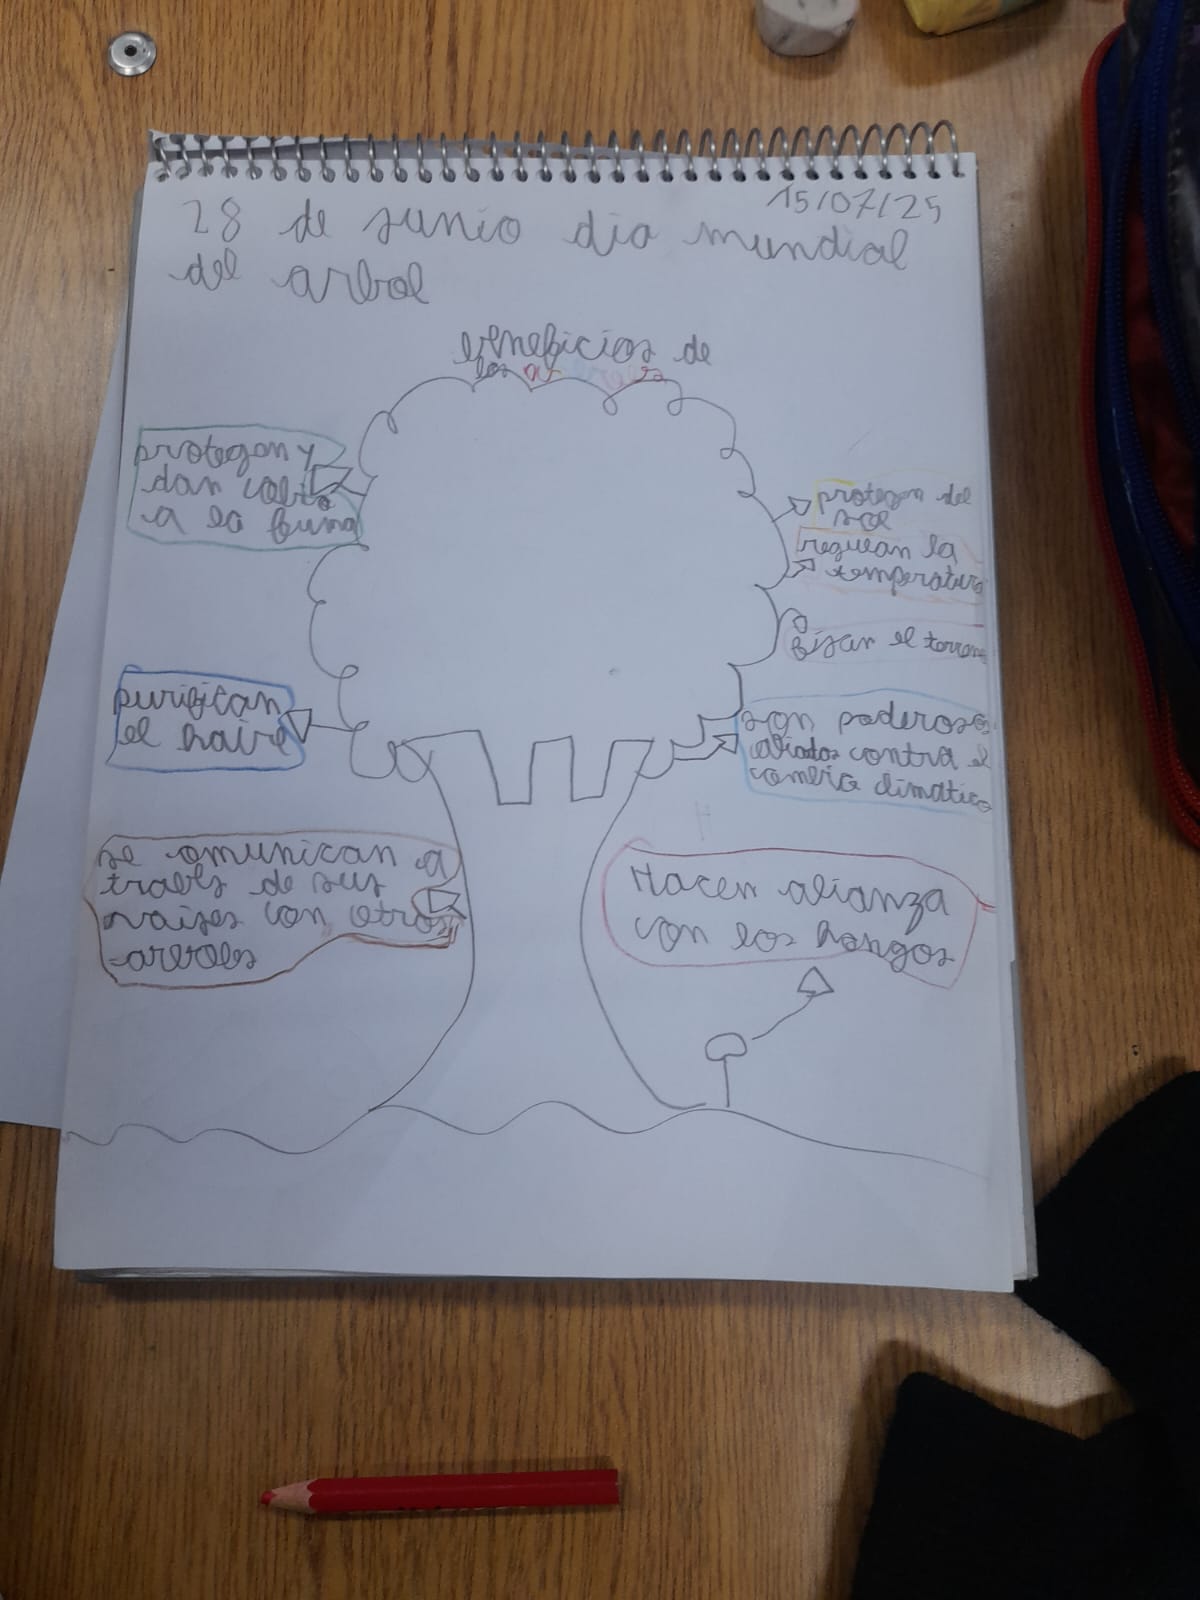 15/07/25
28 de junio dia mundial
del arbol
beneficios de
los
protegen y
dan
a la
purifican
el haire
se omunican a
traves de sus
raises con otros
arboles
protegen del
sol
regulan la
temperatura
fijan el
son poderosos
aliados contra el
cambio climatico
Hacen alianza
con los hongos